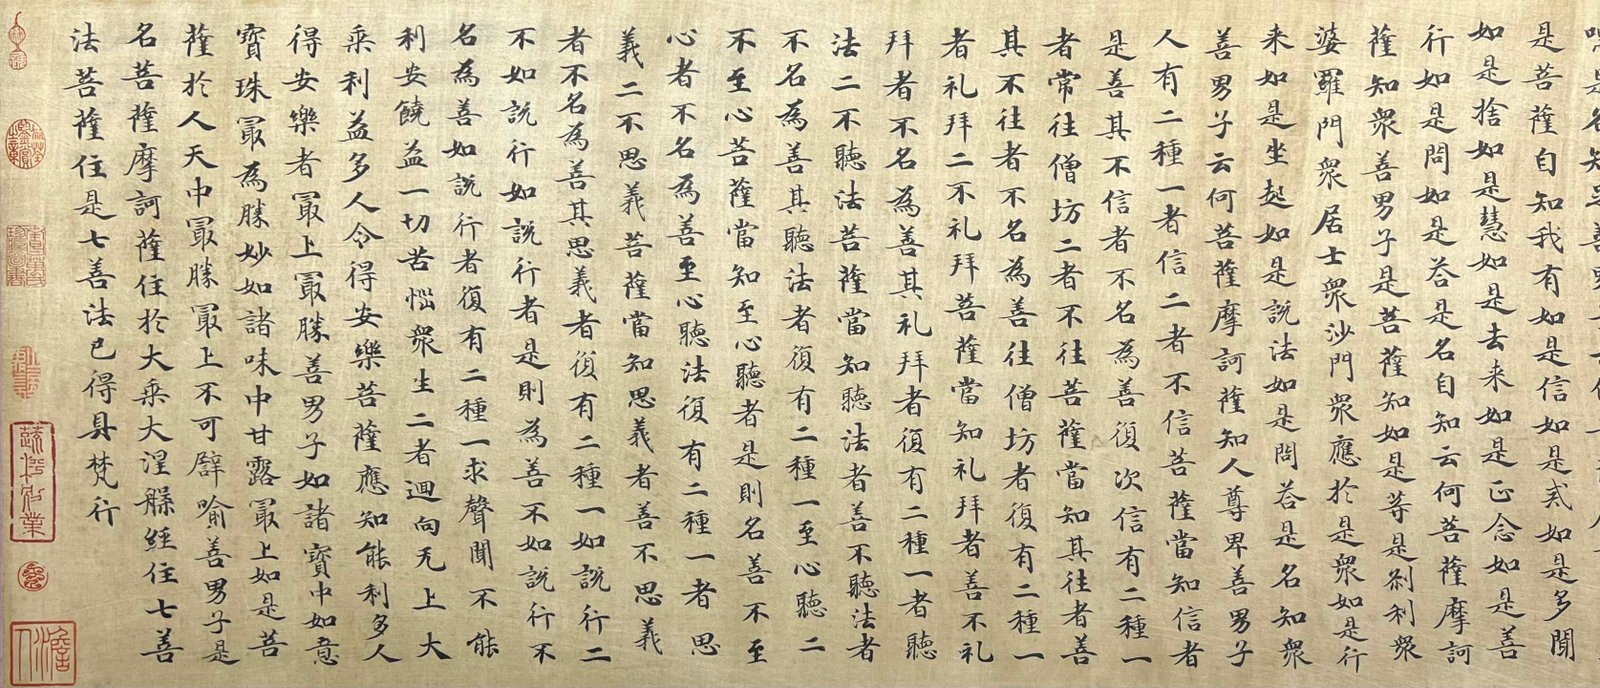 是菩薩自知我有如是信如是戒如是多聞
如是捨如是慧如是去来如是正念如是善
行如是問如是荅是名自知云何菩薩摩訶
薩知衆善男子是菩薩知如是等是刹利衆
婆羅門衆居士衆沙門衆應於是衆如是行
来如是坐起如是説法如是問荅是名知衆
善男子云何菩薩摩訶薩知人尊卑善男子
人有二種一者信二者不信菩薩當知信者
是善其不信者不名為善復次信有二種一
者常往僧坊二者不往菩薩當知其往者善
其不往者不名為善往僧坊者復有二種一
者礼拜二不礼拜菩薩當知礼拜者善不礼
拜者不名為善其礼拜者復有二種一者聽
法二不聽法菩薩當知聽法者善不聽法者
不名為善其聽法者復有二種一至心聽二
不至心菩薩當知至心聽者是則名善不至
心者不名為善至心聽法復有二種一者思
義二不思義菩薩當知思義者善不思義
者不名為善其思義者復有二種一如説行二
不如説行如説行者是則為善不如説行不
名為善如説行者復有二種一求聲聞不能
利安饒益一切苦惱衆生二者迴向无上大
乘利益多人令得安樂菩薩應知能利多人
得安樂者冣上冣勝善男子如諸寶中如意
寶珠冣為勝妙如諸味中甘露冣上如是菩
薩於人天中冣勝冣上不可譬喻善男子是
名菩薩摩訶薩住於大乘大涅槃經住七善
法菩薩住是七善法已得具梵行